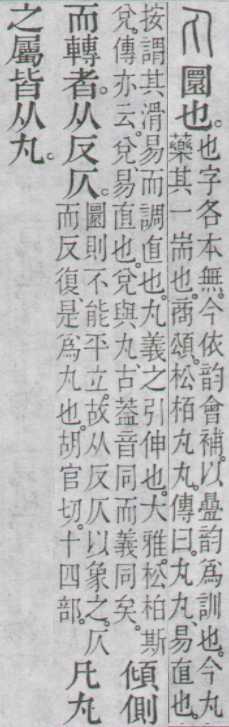 圜也。也字各本無。今依韵會補。以曡韵爲訓也。今丸
藥其一耑也。商頌。松栢丸丸。傳曰。丸丸、易直也。
按謂其滑易而調直也。丸義之引伸也。大雅。松柏斯
兌。傳亦云。兌、易直也。兌與丸、古葢音同而義同矣。傾側
而轉者。从反仄。圜則不能平立。故从反仄以象之。仄
而反復、是爲丸也。胡官切。十四部。凡丸
之屬皆从丸。